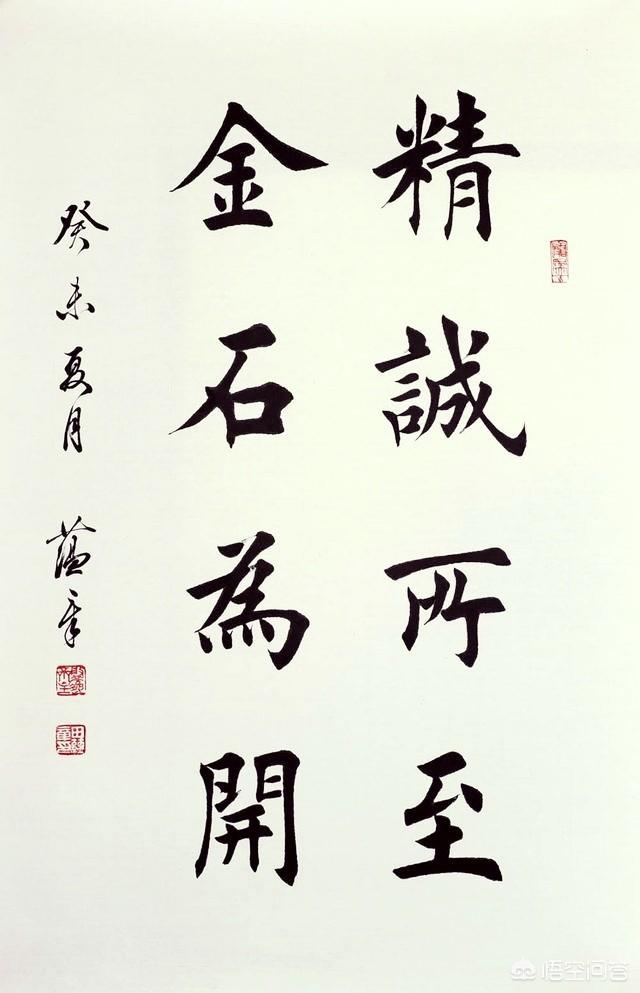 精誠所至
金石為開
癸未夏月 蕴章
悟空问答